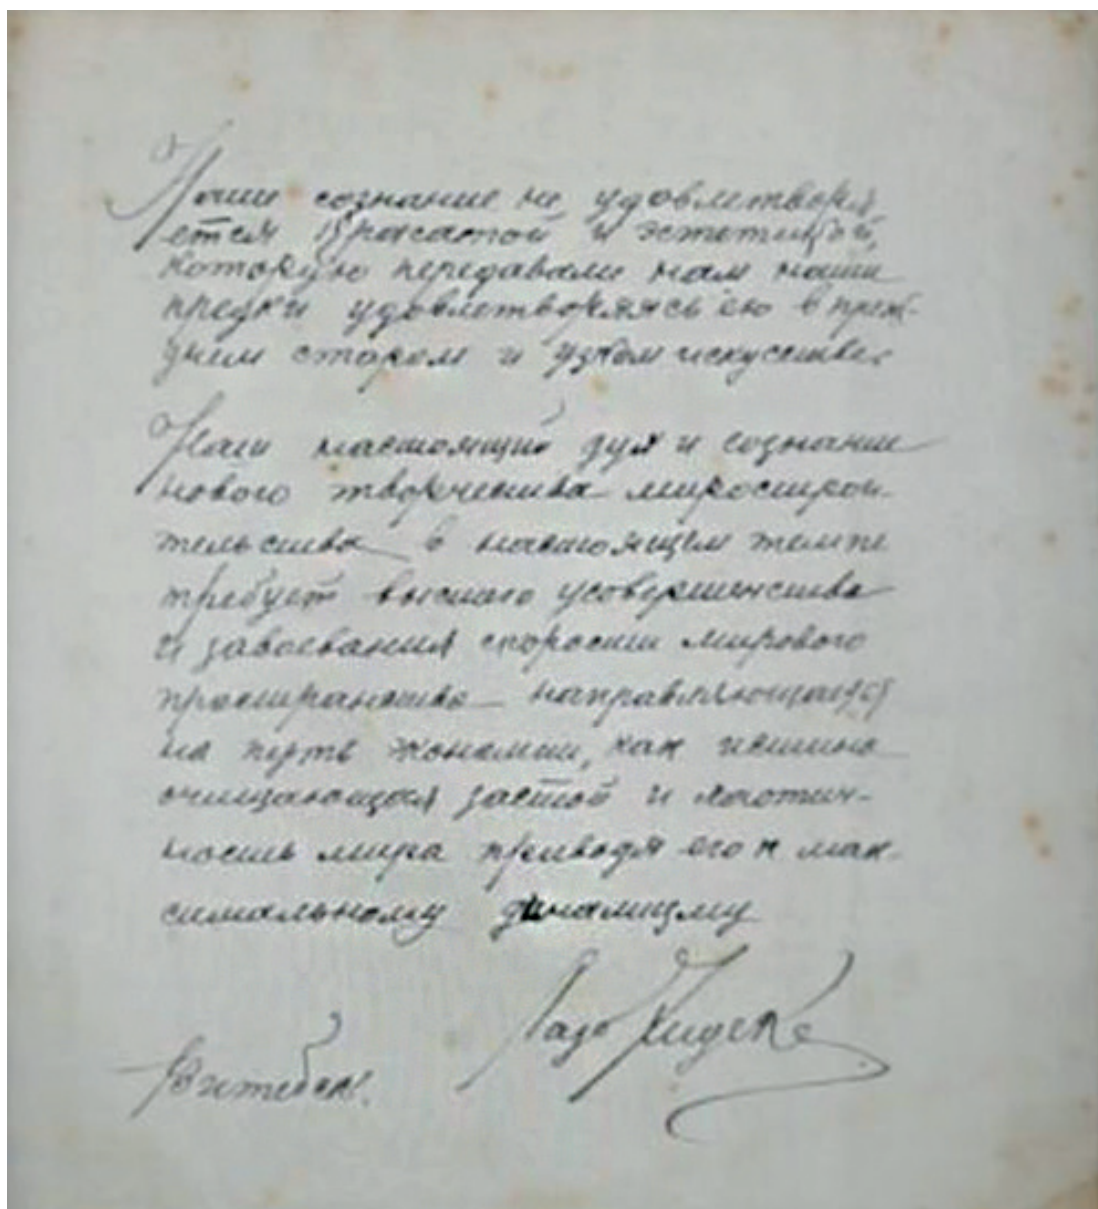 Наше сознание не удовлетворя
ется красатой и эстетицой,
которую передавали нам наши
предки удовлетворяясь ею в преж-
днем старом и узком искусстве.
Наш настоящий дух и сознание
нового творчества мирострои-
тельства в настоящем темпе
требует высшаго усовершенства
и завоевания скорости мирового
пространства направляющаяся
на путь экономии, как истина
очищающая застой и хаотич-
ность мира приводя его к мак-
симальному динамизму
Лазо Хидеке
Витебск.